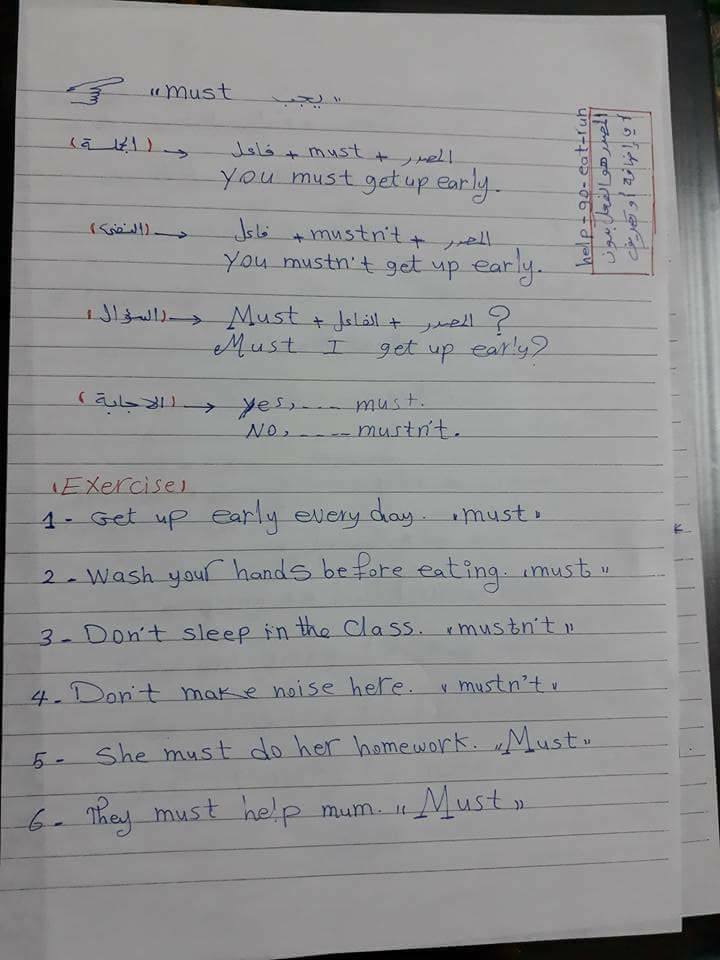 "must يجب"
(الجملة) → فاعل + must + المصدر
You must get up early.
(النفى) → فاعل + mustn't + المصدر
You mustn't get up early.
(السؤال) → Must + الفاعل + المصدر ?
Must I get up early?
(الاجابة) → Yes, ---- must.
No, ---- mustn't.
help - go - eat - run
المصدر هو الفعل بدون
أي إضافة أو تصريف
(Exercise)
1 - Get up early every day. "must"
2 - Wash your hands before eating. "must"
3 - Don't sleep in the Class. "mustn't"
4 - Don't make noise here. "mustn't"
5 - She must do her homework. "Must"
6 - They must help mum. "Must"